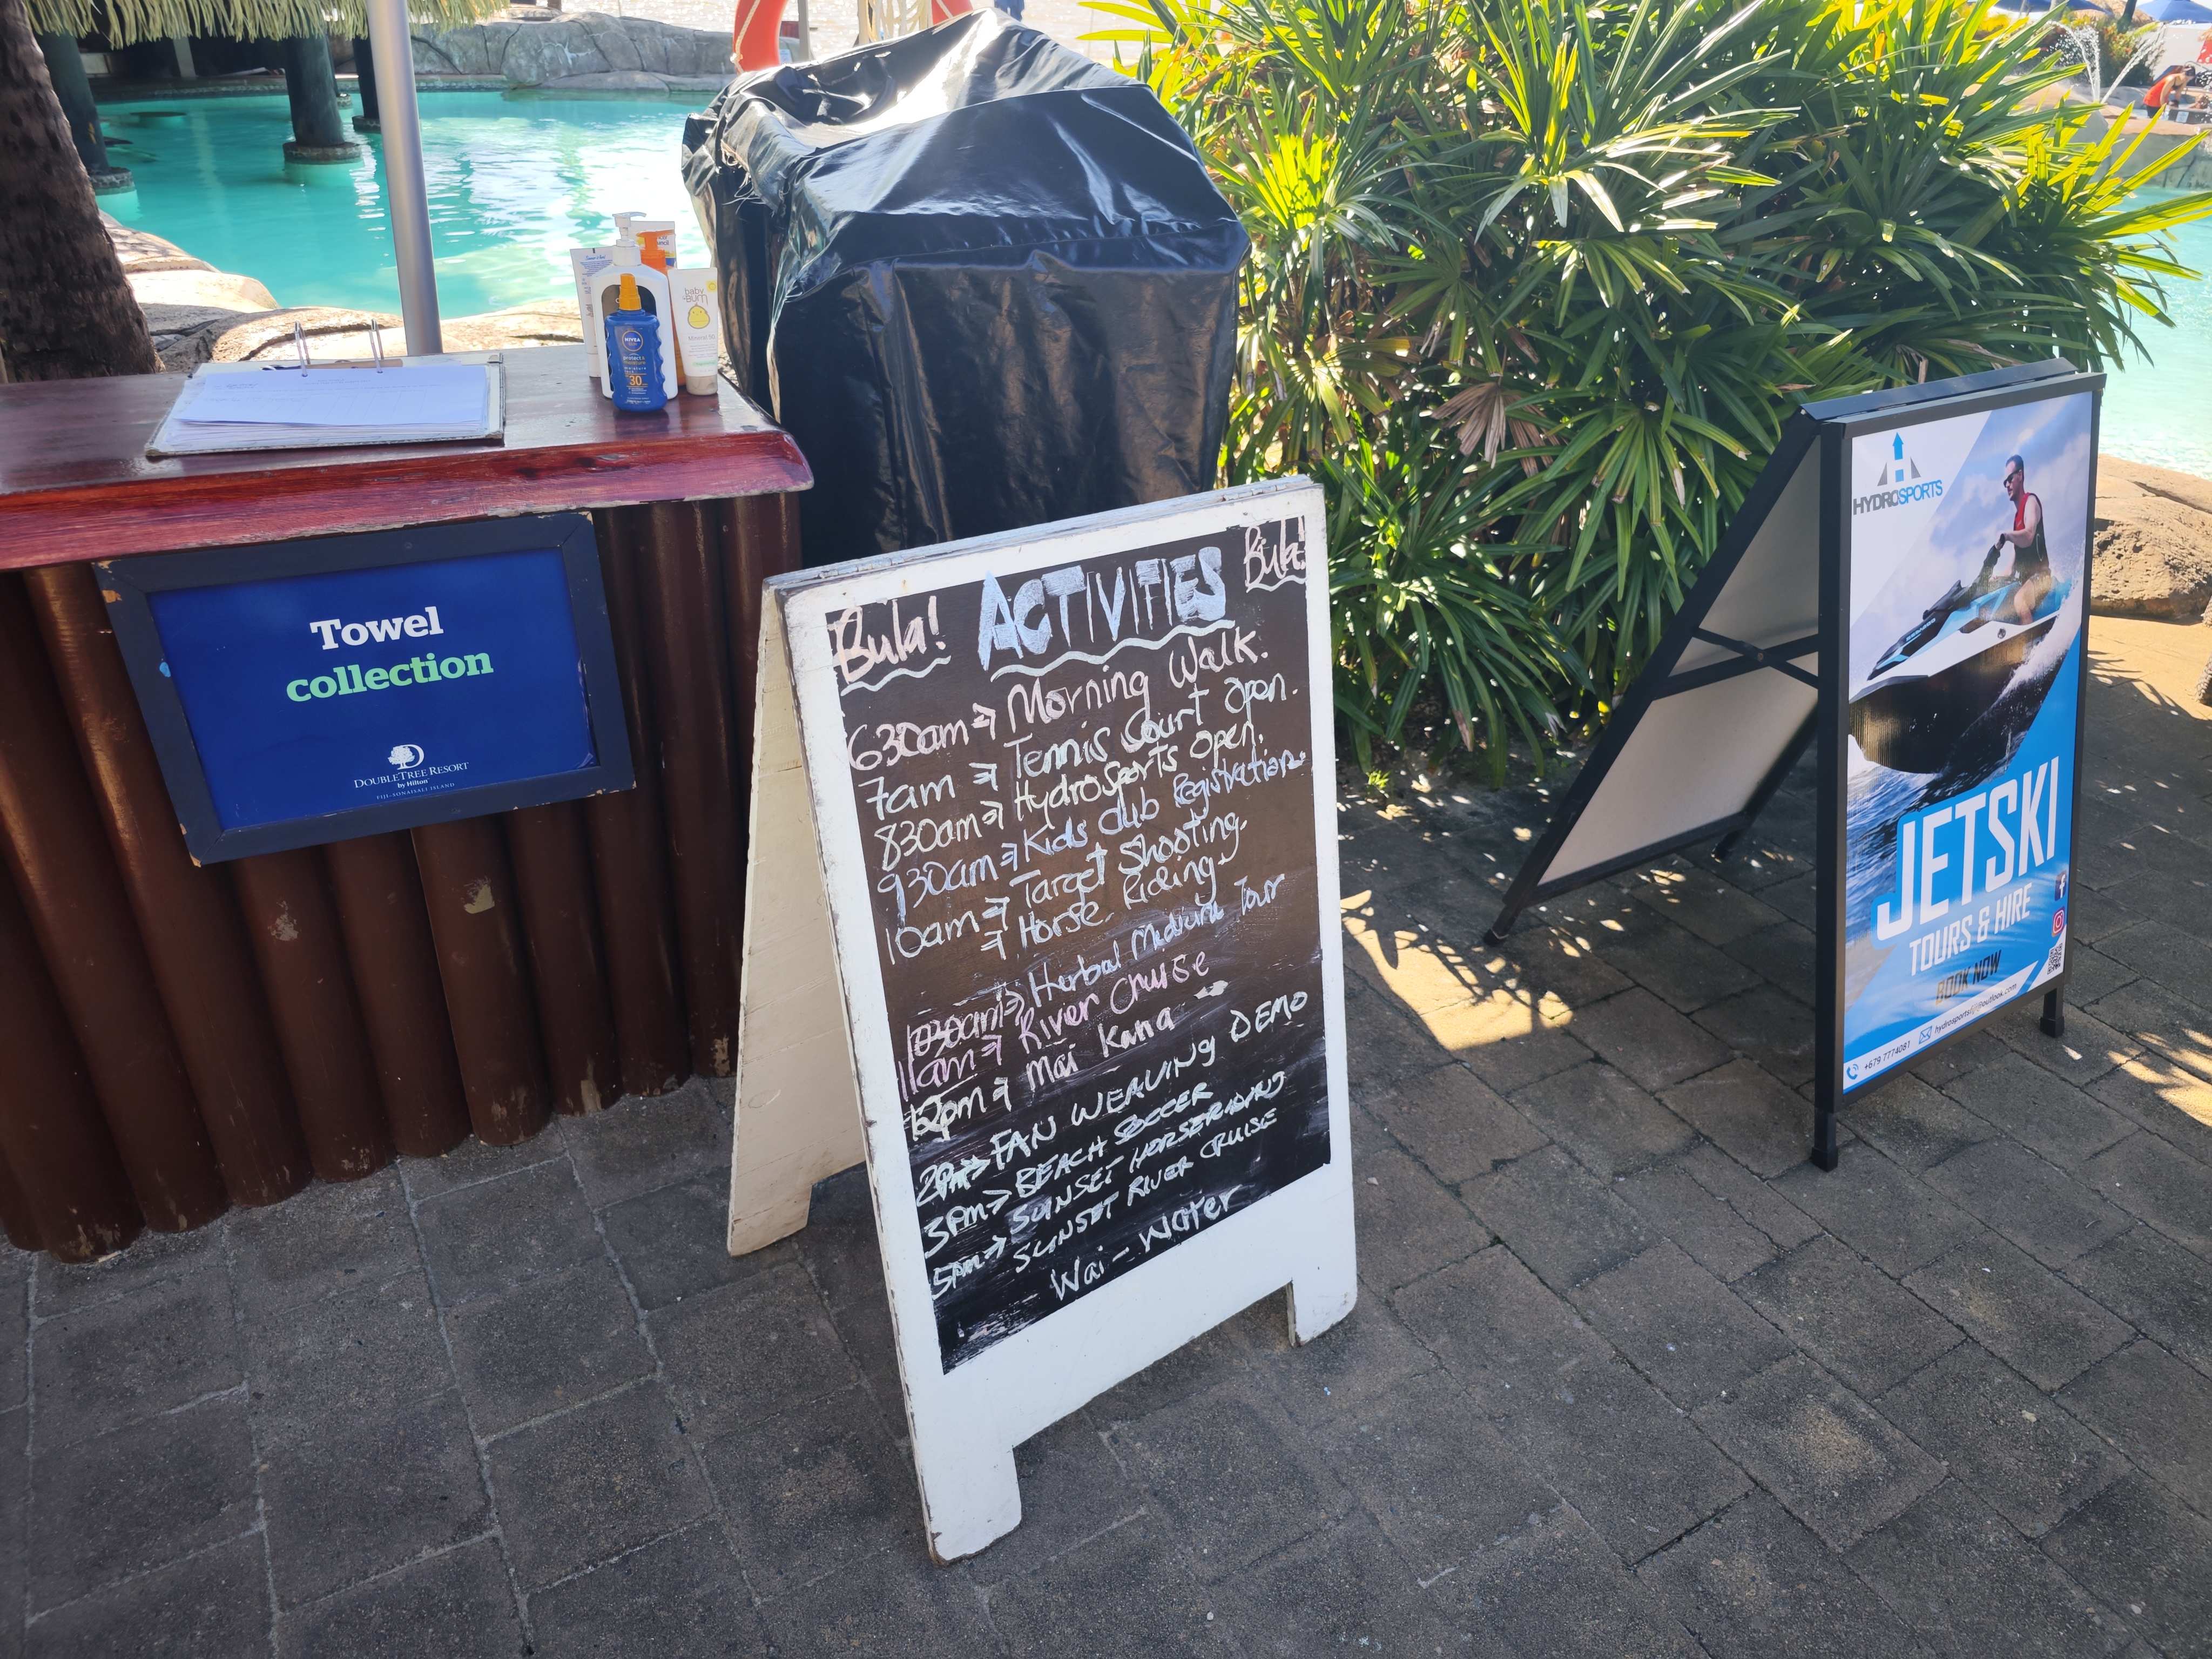 Towel
collection
DOUBLETREE RESORT
by Hilton
FIJI-SONAISALI ISLAND
NIVA
protect &
30
baby
BUM
Bula! ACTIVITIES Bula!
630am => Morning Walk.
7am => Tennis Court Open.
830am => HydroSports Open.
930am => Kids club Registration.
10am => Target Shooting.
=> Horse Riding
1030am => Herbal Medicine Tour
11am => River Cruise
12pm => Mai Kana
2PM => FAN WEAVING DEMO
3PM => BEACH SOCCER
5PM => SUNSET HORSERIDING
SUNSET RIVER CRUISE
Wai - Water
HYDROSPORTS
JETSKI
TOURS & HIRE
BOOK NOW
+679 7774081